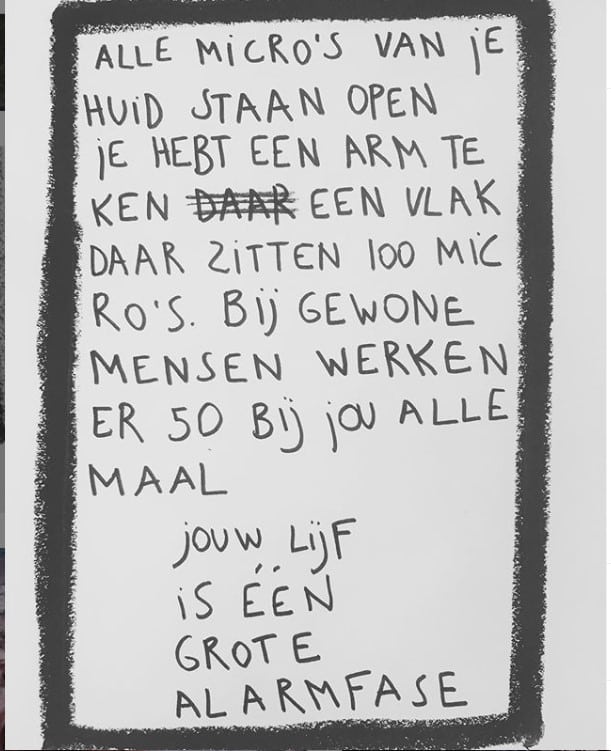 ALLE MICRO'S VAN JE
HUID STAAN OPEN
JE HEBT EEN ARM TE
KEN DAAR EEN VLAK
DAAR ZITTEN 100 MIC
RO'S. BIJ GEWONE
MENSEN WERKEN
ER 50 BIJ JOU ALLE
MAAL
JOUW LIJF
IS ÉÉN
GROTE
ALARMFASE